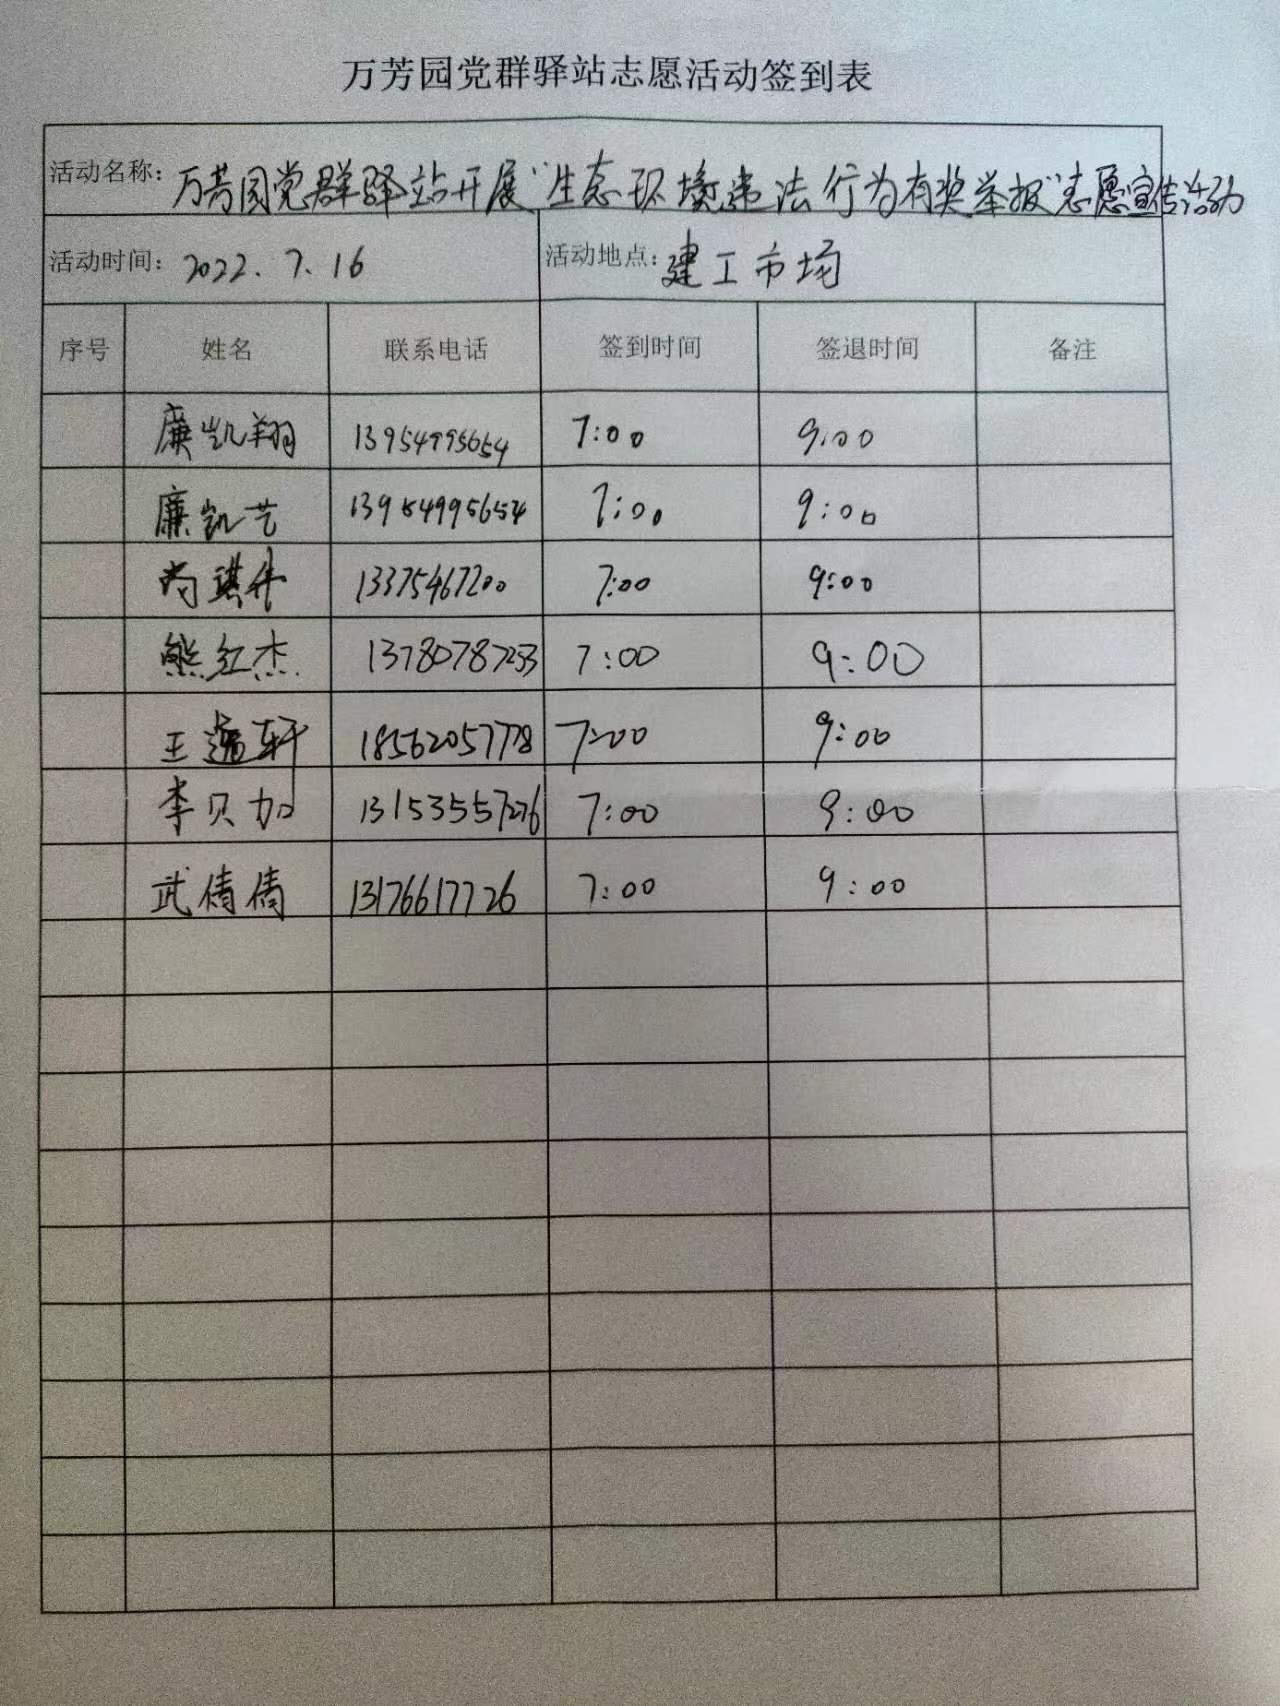 万芳园党群驿站志愿活动签到表
活动名称：万芳园党群驿站开展"生态环境违法行为有奖举报"志愿宣传活动
活动时间：2022.7.16 活动地点：建工市场
序号 姓名 联系电话 签到时间 签退时间 备注
廉凯翔 13954995654 7:00 9:00
廉凯艺 13954995654 7:00 9:00
尚琪 13375467200 7:00 9:00
熊红杰 13780787253 7:00 9:00
王逸轩 18562057778 7:00 9:00
李贝加 13153557276 7:00 9:00
武倩倩 13176617726 7:00 9:00